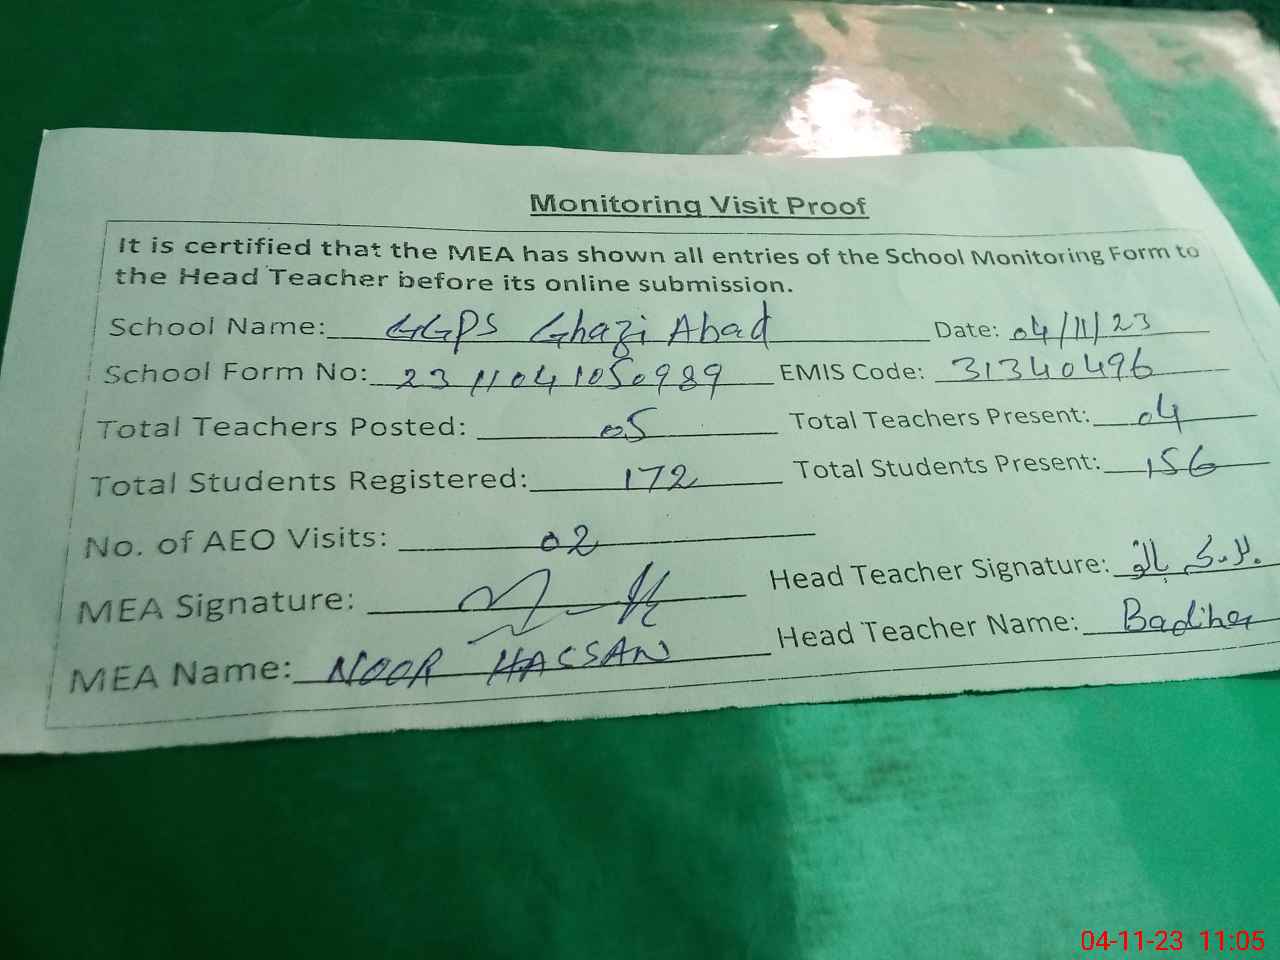 Monitoring Visit Proof
It is certified that the MEA has shown all entries of the School Monitoring Form to
the Head Teacher before its online submission.
School Name: GGPS Ghazi Abad Date: 04/11/23
School Form No: 2311041050989 EMIS Code: 31340496
Total Teachers Posted: 05 Total Teachers Present: 04
Total Students Registered: 172 Total Students Present: 156
No. of AEO Visits: 02
MEA Signature: Head Teacher Signature:
MEA Name: NOOR HASSAN Head Teacher Name:
04-11-23 11:05